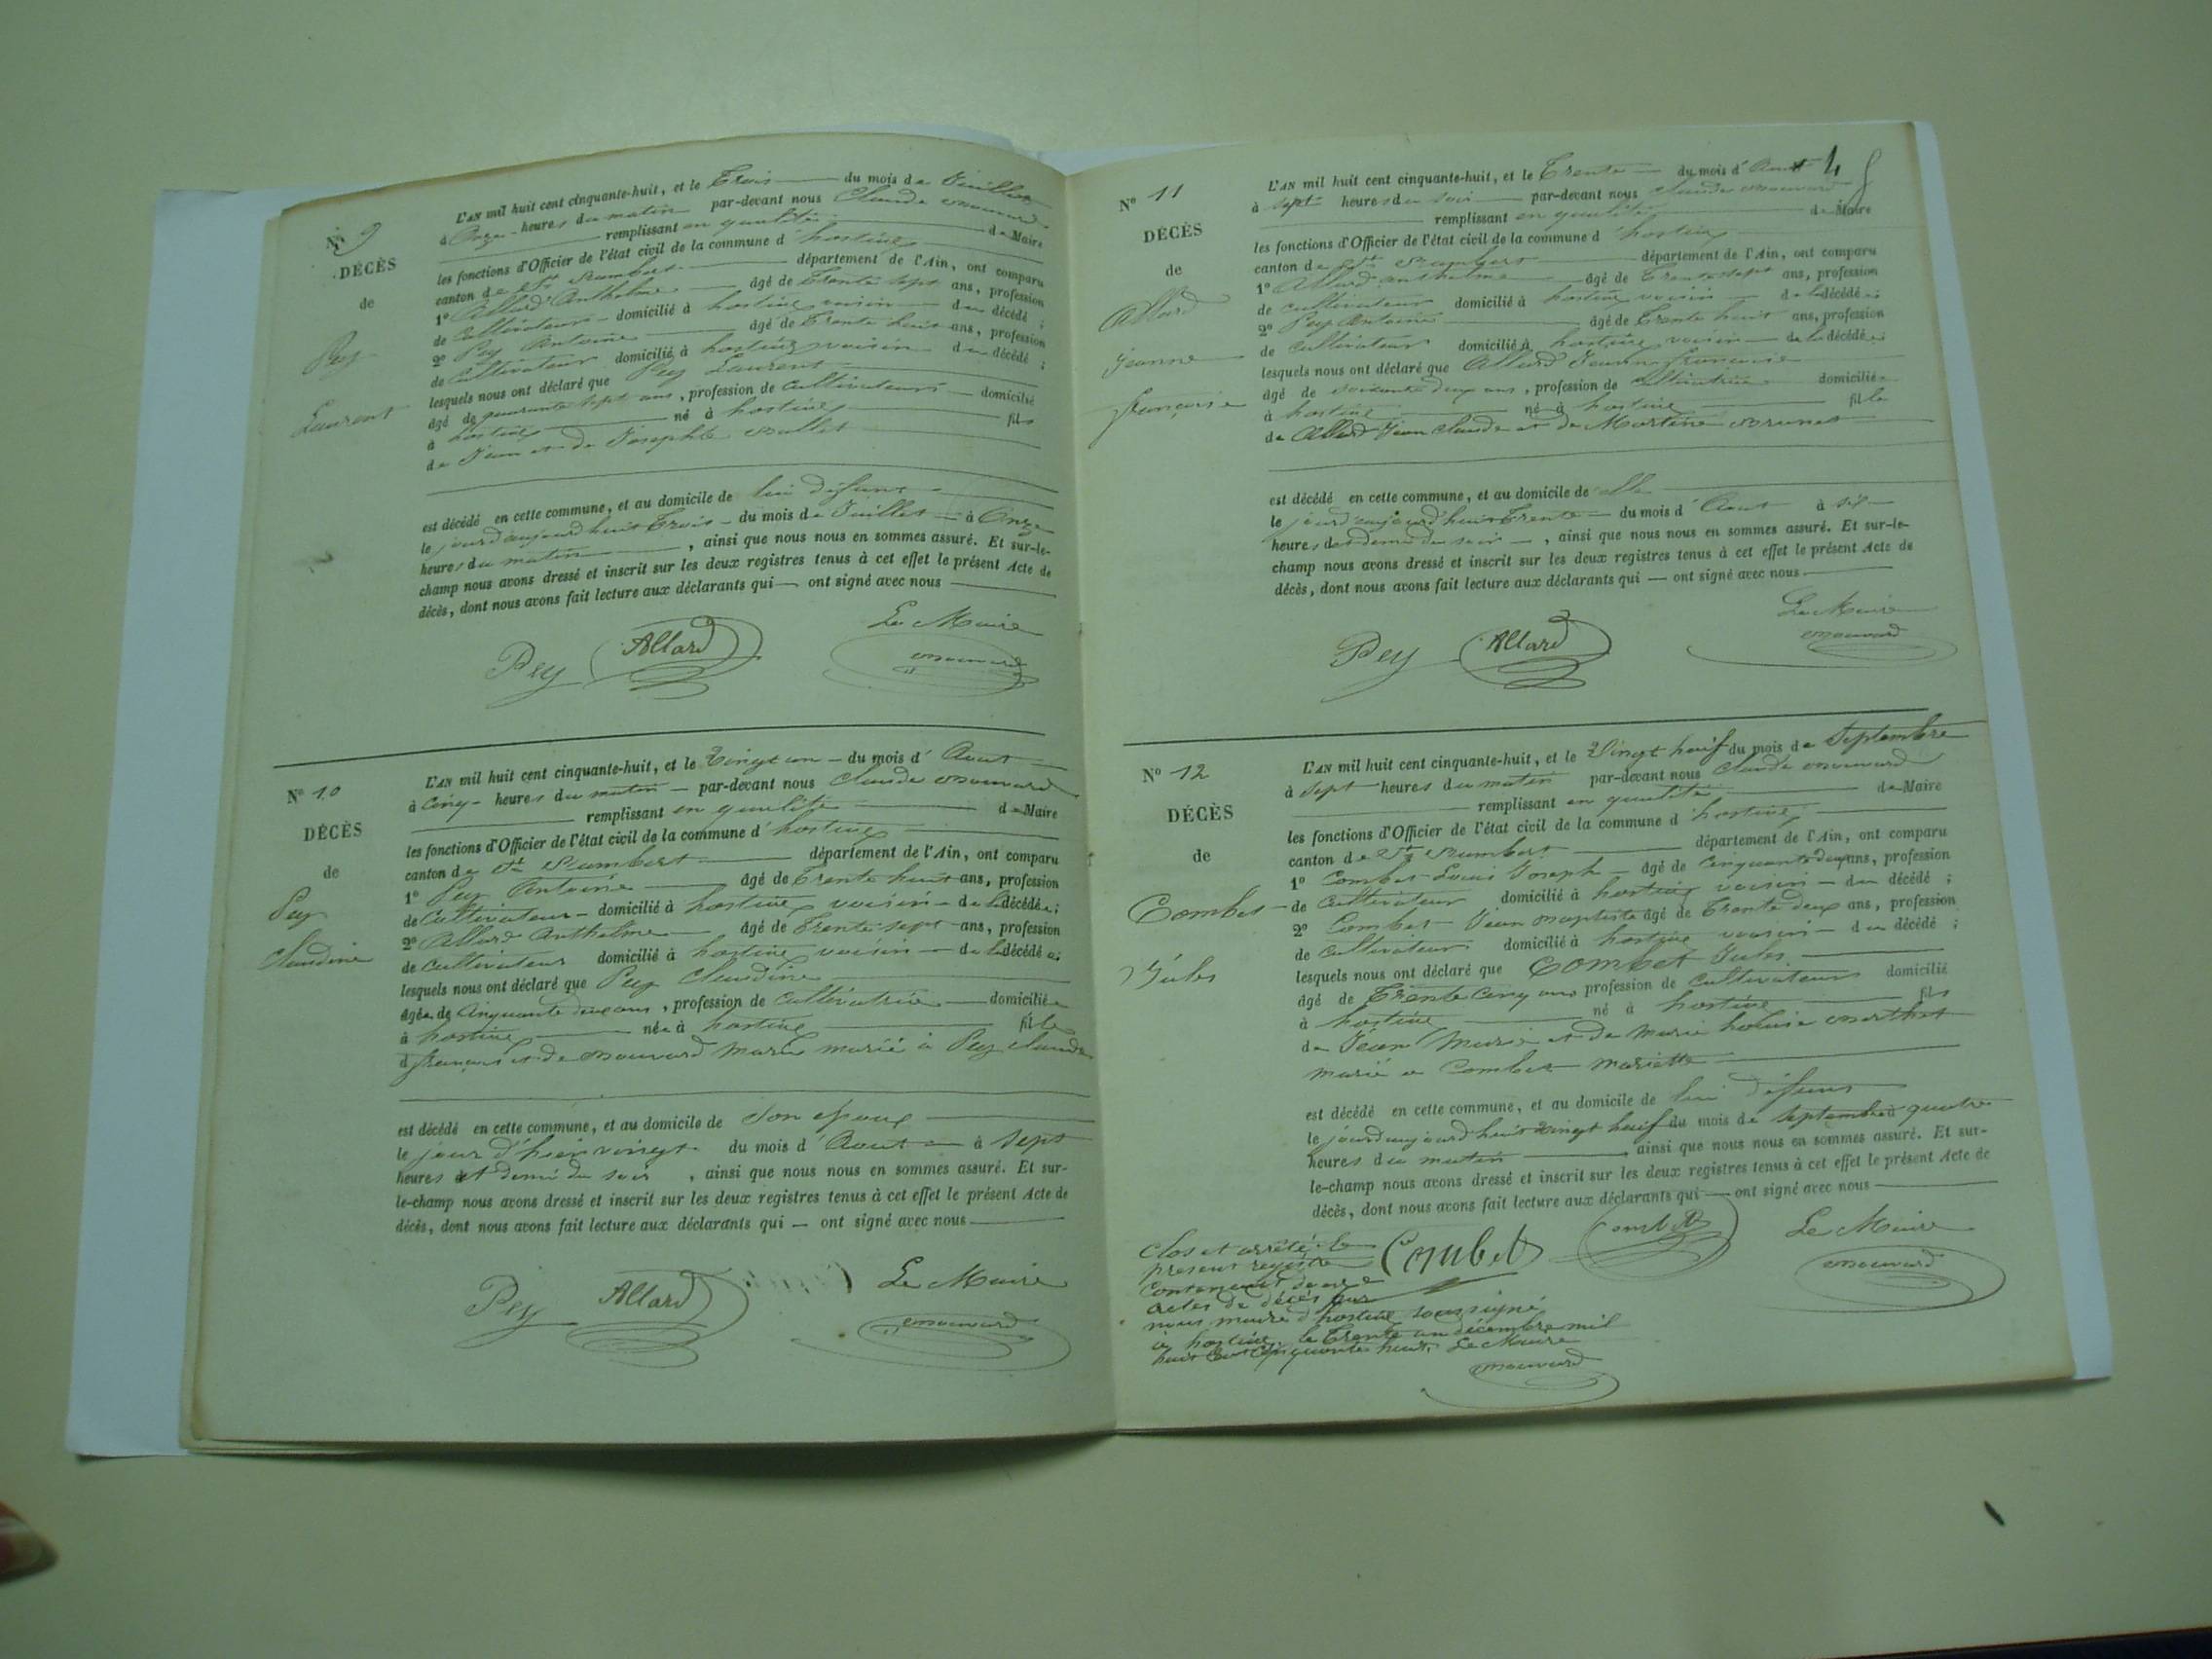 N° 9
DÉCÈS
de
Pey
Laurent
L'AN mil huit cent cinquante-huit, et le Trois du mois de Juillet
à Onze heures du matin par-devant nous Claude
remplissant en qualité de Maire
les fonctions d'Officier de l'état civil de la commune d'hostiaz
canton de St Rambert département de l'Ain, ont comparu
1° Allard Anthelme âgé de Trente sept ans, profession
de Cultivateur domicilié à hostiaz voisin du décédé ;
2° Pey Antoine âgé de Trente huit ans, profession
de Cultivateur domicilié à hostiaz voisin du décédé ;
lesquels nous ont déclaré que Pey Laurent
âgé de quarante sept ans, profession de Cultivateur domicilié
à hostiaz né à hostiaz fils
de Jean et de Josephte
est décédé en cette commune, et au domicile de lui défunt
le jourd'aujourd'huit Trois du mois de Juillet à Onze
heures du matin, ainsi que nous nous en sommes assuré. Et sur-le-
champ nous avons dressé et inscrit sur les deux registres tenus à cet effet le présent Acte de
décès, dont nous avons fait lecture aux déclarants qui — ont signé avec nous
Pey Allard Le Maire
N° 10
DÉCÈS
de
Pey
Claudine
L'AN mil huit cent cinquante-huit, et le Vingt un du mois d'Aout
à Cinq heures du matin par-devant nous Claude
remplissant en qualité de Maire
les fonctions d'Officier de l'état civil de la commune d'hostiaz
canton de St Rambert département de l'Ain, ont comparu
1° Pey Antoine âgé de Trente huit ans, profession
de Cultivateur domicilié à hostiaz voisin de la décédée ;
2° Allard Anthelme âgé de Trente sept ans, profession
de Cultivateur domicilié à hostiaz voisin de la décédée ;
lesquels nous ont déclaré que Pey Claudine
âgée de Cinquante deux ans, profession de Cultivatrice domiciliée
à hostiaz née à hostiaz fille
de françois et de Marie marié à Pey Claude
est décédé en cette commune, et au domicile de Son epoux
le jour d'hier vingt du mois d'Aout à Sept
heures et demi du soir, ainsi que nous nous en sommes assuré. Et sur-
le-champ nous avons dressé et inscrit sur les deux registres tenus à cet effet le présent Acte de
décès, dont nous avons fait lecture aux déclarants qui — ont signé avec nous
Pey Allard Le Maire
4
N° 11
DÉCÈS
de
Allard
Jeanne
françoise
L'AN mil huit cent cinquante-huit, et le Trente du mois d'Aout
à Sept heures du soir par-devant nous Claude
remplissant en qualité de Maire
les fonctions d'Officier de l'état civil de la commune d'hostiaz
canton de St Rambert département de l'Ain, ont comparu
1° Allard anthelme âgé de Trente sept ans, profession
de Cultivateur domicilié à hostiaz voisin de la décédée
2° Pey Antoine âgé de Trente huit ans, profession
de Cultivateur domicilié à hostiaz voisin de la décédée
lesquels nous ont déclaré que Allard Jeanne françoise
âgé de soixante deux ans, profession de Cultivatrice domiciliée
à hostiaz né à hostiaz fille
de Allard Jean Claude et de Martine Brunet
est décédé en cette commune, et au domicile de elle
le jourd'aujourd'huit Trente du mois d'Aout à Six
heures et demi du soir, ainsi que nous nous en sommes assuré. Et sur-le-
champ nous avons dressé et inscrit sur les deux registres tenus à cet effet le présent Acte de
décès, dont nous avons fait lecture aux déclarants qui — ont signé avec nous
Pey Allard Le Maire
N° 12
DÉCÈS
de
Combet
Jules
L'AN mil huit cent cinquante-huit, et le Vingt huif du mois de Septembre
à Sept heures du matin par-devant nous Claude
remplissant en qualité de Maire
les fonctions d'Officier de l'état civil de la commune d'hostiaz
canton de St Rambert département de l'Ain, ont comparu
1° Combet Louis Joseph âgé de Cinquante deux ans, profession
de Cultivateur domicilié à hostiaz voisin du décédé ;
2° Combet Jean Baptiste âgé de Trente deux ans, profession
de Cultivateur domicilié à hostiaz voisin du décédé ;
lesquels nous ont déclaré que Combet Jules
âgé de Trente Cinq ans profession de Cultivateur domicilié
à hostiaz né à hostiaz fils
de Jean Marie et de Marie
marié a Combet Mariette
est décédé en cette commune, et au domicile de lui défunt
le jourd'aujourd'huit vingt huif du mois de Septembre à quatre
heures du matin ainsi que nous nous en sommes assuré. Et sur-
le-champ nous avons dressé et inscrit sur les deux registres tenus à cet effet le présent Acte de
décès, dont nous avons fait lecture aux déclarants qui — ont signé avec nous
Combet Combet Le Maire
Clos et arrêté le
présent registre
Contenant douze
actes de décès par
nous maire d'hostiaz soussigné
à hostiaz le Trente un décembre mil
huit Cent Cinquante huit. Le Maire